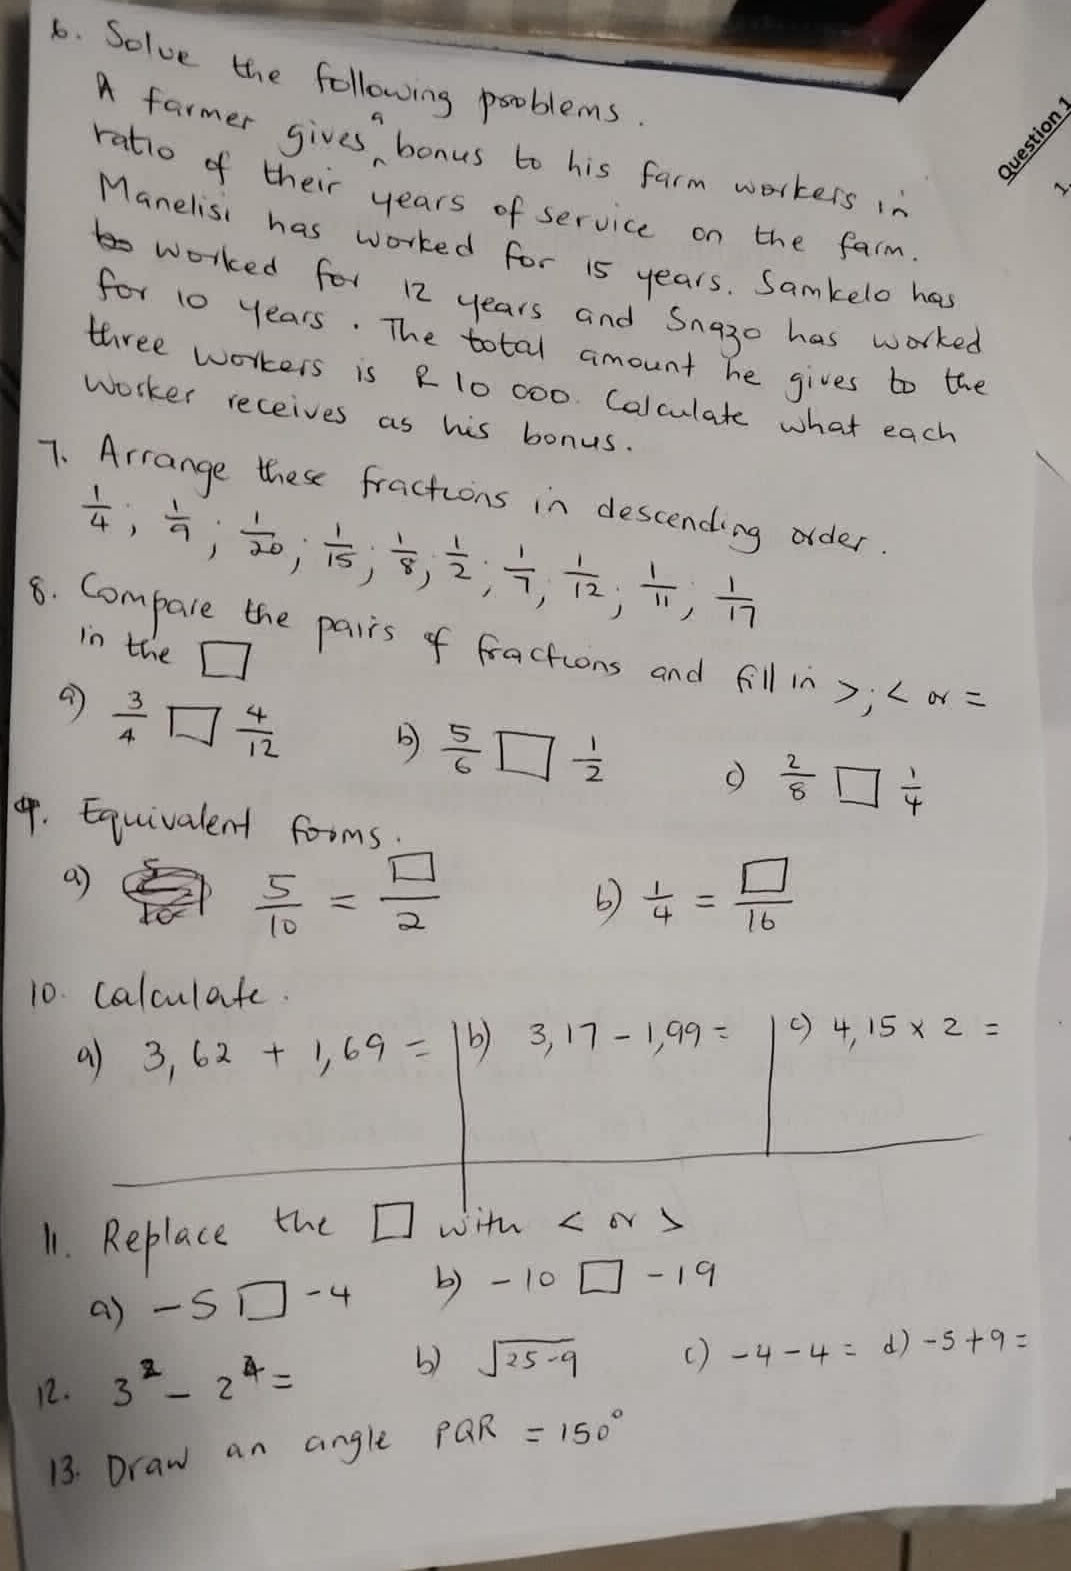 6. Solve the following problems.
A farmer gives a bonus to his farm workers in
ratio of their years of service on the farm.
Manelisi has worked for 15 years. Samkelo has
worked for 12 years and Snazo has worked
for 10 years. The total amount he gives to the
three workers is R 10 000. Calculate what each
worker receives as his bonus.
7. Arrange these fractions in descending order.
1/4 ; 1/9 ; 1/20 ; 1/15 ; 1/8 ; 1/2 ; 1/7 , 1/12 ; 1/11 ; 1/17
8. Compare the pairs of fractions and fill in > ; < or =
in the □
a) 3/4 □ 4/12 b) 5/6 □ 1/2 c) 2/8 □ 1/4
9. Equivalent forms.
a) 5/10 = □/2 b) 1/4 = □/16
10. Calculate.
a) 3,62 + 1,69 = b) 3,17 - 1,99 = c) 4,15 x 2 =
11. Replace the □ with < or >
a) -5 □ -4 b) -10 □ -19
12. 3² - 2⁴ = b) √25-9 c) -4-4 = d) -5+9 =
13. Draw an angle PQR = 150°
Question 1
1.